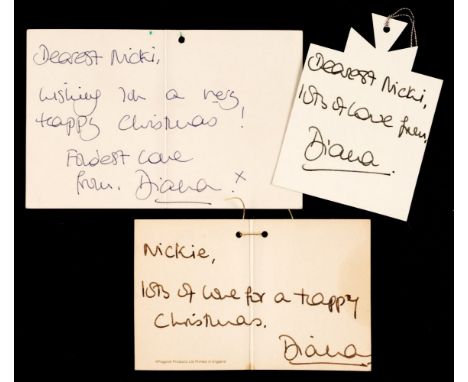 Dearest Nicki,
Wishing you a very
Happy Christmas!
Fondest love
from, Diana. x
Dearest Nicki,
lots of love from,
Diana.
Nickie,
lots of love for a Happy
Christmas.
Diana
Printed in England